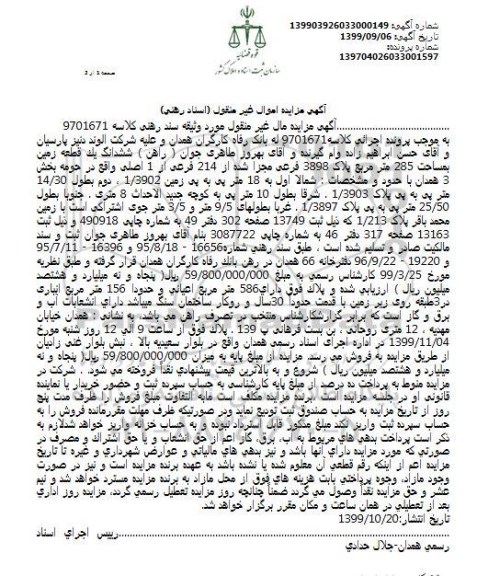 شماره آگهی: 139903926033000149
تاریخ آگهی: 1399/09/06
شماره پرونده:
139704026033001597
قوه قضائیه
سازمان ثبت اسناد و املاک کشور
صفحه 1 از 2
آگهی مزایده اموال غیر منقول (اسناد رهنی)
آگهی مزایده مال غیر منقول مورد وثیقه سند رهنی کلاسه 9701671
به موجب پرونده اجرائی کلاسه 9701671 له بانک رفاه کارگران همدان و علیه شرکت الوند دنیز پارسیان
و آقای حسن ابراهیم زاده وام گیرنده و آقای بهروز طاهری جول ( راهن ) ششدانگ یك قطعه زمین
بمساحت 285 متر مربع پلاک 3898 فرعی مجزا شده از 214 فرعی از 1 اصلی واقع در حومه بخش
3 همدان با حدود و مشخصات : شمالا اول به 18 متر پی به پی زمین 1/3902 ، دوم بطول 14/30
متر پی به پی پلاک 1/3903 ، شرقا بطول 10 متر پی به کوچه جدید الاحداث 8 متری ، جنوبا بطول
25/50 متر پی به پی پلاک 1/3897 ، غربا بطولهای 9/5 متر و 3/5 متر جوی اشتراکی است با زمین
محمد باقر پلاک 1/213 که ذیل ثبت 13749 صفحه 302 دفتر 49 به شماره چاپی 490918 و ذیل ثبت
13163 صفحه 317 دفتر 46 به شماره چاپی 3087722 بنام آقای بهروز طاهری جول ثبت و سند
مالکیت صادر و تسلیم شده است ، طبق سند رهنی شماره 16656- 95/8/18 و 16396 – 95/7/11
و 19220 – 96/9/22 دفترخانه 66 همدان در رهن بانك رفاه کارگران همدان قرار گرفته و طبق نظریه
مورخ 99/3/25 کارشناس رسمی به مبلغ 59/800/000/000 ریال( پنجاه و نه میلیارد و هشتصد
میلیون ریال ) ارزیابی شده و پلاک فوق دارای586 متر مربع اعیانی و حدودا 156 متر مربع انباری
در3طبقه روی زیر زمین با قدمت حدودا 30سال و روکار ساختمان سنگ میباشد دارای انشعابات آب و
برق و گاز است که برابر گزارشکارشناس منتخب در تصرف راهن می باشد ، به نشانی : همدان خیابان
مهدیه ، 12 متری روحانی ، بن بست فرهانی ، پ 139 . پلاک فوق از ساعت 9 الی 12 روز شنبه مورخ
1399/11/04 در اداره اجرای اسناد رسمی همدان واقع در بلوار سعیدیه بالا ، نبش بلوار غنی زادیان
از طریق مزایده به فروش می رسد. مزایده از مبلغ پایه به میزان 59/800/000/000 ریال( پنجاه و نه
میلیارد و هشتصد میلیون ریال ) شروع و به بالاترین قیمت پیشنهادی نقدا فروخته می شود. شرکت در
مزایده منوط به پرداخت ده درصد از مبلغ پایه کارشناسی به حساب سپرده ثبت و حضور خریدار یا نماینده
قانونی او در جلسه مزایده است .برنده مزایده مکلف است مابه التفاوت مبلغ فروش را ظرف مدت پنج
روز از تاریخ مزایده به حساب صندوق ثبت تودیع نماید ودر صورتیکه ظرف مهلت مقررمانده فروش را به
حساب سپرده ثبت واریز نکند مبلغ مذکور قابل استرداد نبوده و به حساب خزانه واریز خواهد شدلازم به
ذکر است پرداخت بدهی های مربوط به آب، برق، گاز اعم از حق انشعاب و یا حق اشتراک و مصرف در
صورتی که مورد مزایده دارای آنها باشد و نیز بدهی های مالیاتی و عوارض شهرداری و غیره تا تاریخ
مزایده اعم از اینکه رقم قطعی آن معلوم شده یا نشده باشد به عهده برنده مزایده است و نیز در صورت
وجود مازاد، وجوه پرداختی بابت هزینه های فوق از محل مازاد به برنده مزایده مسترد خواهد شد و نیم
عشر و حق مزایده نقدا وصول می گردد ضمنا چنانچه روز مزایده تعطیل رسمی گردد، مزایده روز اداری
بعد از تعطیلی در همان ساعت و مکان مقرر برگزار خواهد شد.
تاریخ انتشار:1399/10/20
رییس اجرای اسناد
رسمی همدان-جلال حدادی